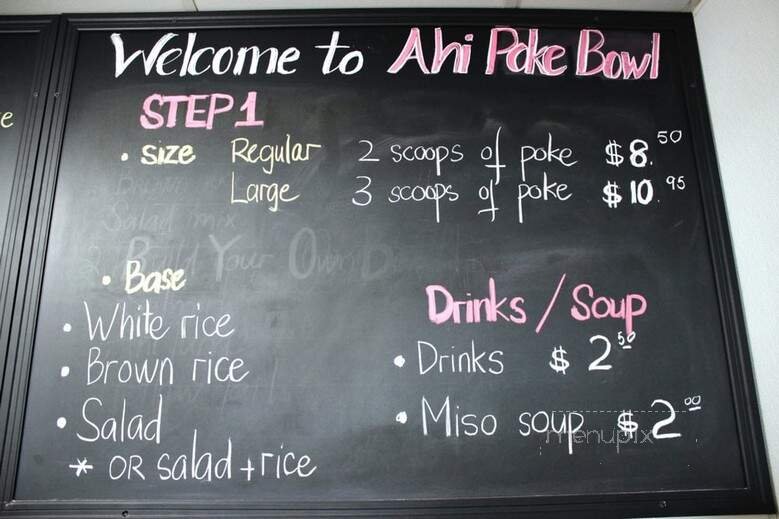 Welcome to Ahi Poke Bowl
STEP 1
• size Regular 2 scoops of poke $8.50
Large 3 scoops of poke $10.95
Salad mix
Build Your Own
• Base
• White rice
• Brown rice
• Salad
* OR salad + rice
Drinks / Soup
• Drinks $2.50
• Miso soup $2.00
menupix
e